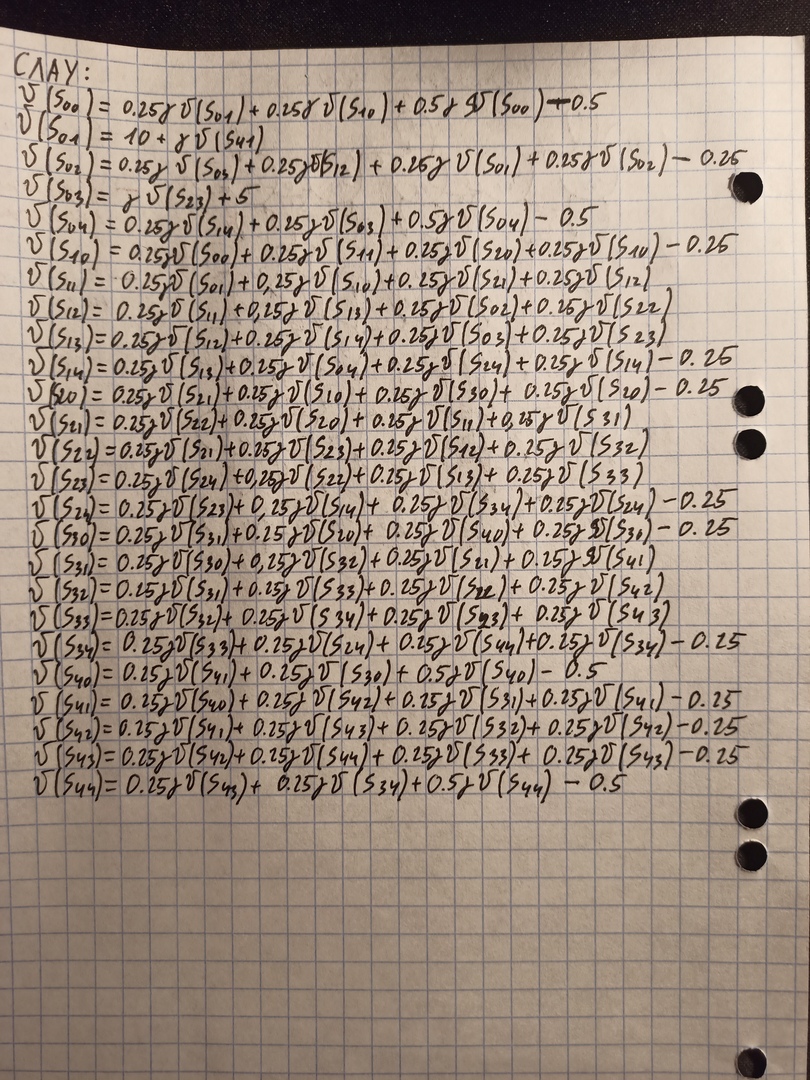 СЛАУ:
υ(S₀₀) = 0.25γ υ(S₀₁) + 0.25γ υ(S₁₀) + 0.5γ υ(S₀₀) - 0.5
υ(S₀₁) = 10 + γ υ(S₄₁)
υ(S₀₂) = 0.25γ υ(S₀₃) + 0.25γ υ(S₁₂) + 0.25γ υ(S₀₁) + 0.25γ υ(S₀₂) - 0.25
υ(S₀₃) = γ υ(S₂₃) + 5
υ(S₀₄) = 0.25γ υ(S₁₄) + 0.25γ υ(S₀₃) + 0.5γ υ(S₀₄) - 0.5
υ(S₁₀) = 0.25γ υ(S₀₀) + 0.25γ υ(S₁₁) + 0.25γ υ(S₂₀) + 0.25γ υ(S₁₀) - 0.25
υ(S₁₁) = 0.25γ υ(S₀₁) + 0,25γ υ(S₁₀) + 0.25γ υ(S₂₁) + 0.25γ υ(S₁₂)
υ(S₁₂) = 0.25γ υ(S₁₁) + 0,25γ υ(S₁₃) + 0.25γ υ(S₀₂) + 0.25γ υ(S₂₂)
υ(S₁₃) = 0.25γ υ(S₁₂) + 0.25γ υ(S₁₄) + 0.25γ υ(S₀₃) + 0.25γ υ(S₂₃)
υ(S₁₄) = 0.25γ υ(S₁₃) + 0.25γ υ(S₀₄) + 0.25γ υ(S₂₄) + 0.25γ υ(S₁₄) - 0.25
υ(S₂₀) = 0.25γ υ(S₂₁) + 0.25γ υ(S₁₀) + 0.25γ υ(S₃₀) + 0.25γ υ(S₂₀) - 0.25
υ(S₂₁) = 0.25γ υ(S₂₂) + 0.25γ υ(S₂₀) + 0.25γ υ(S₁₁) + 0,25γ υ(S₃₁)
υ(S₂₂) = 0.25γ υ(S₂₁) + 0.25γ υ(S₂₃) + 0.25γ υ(S₁₂) + 0.25γ υ(S₃₂)
υ(S₂₃) = 0.25γ υ(S₂₄) + 0,25γ υ(S₂₂) + 0.25γ υ(S₁₃) + 0.25γ υ(S₃₃)
υ(S₂₄) = 0.25γ υ(S₂₃) + 0,25γ υ(S₁₄) + 0.25γ υ(S₃₄) + 0.25γ υ(S₂₄) - 0.25
υ(S₃₀) = 0.25γ υ(S₃₁) + 0.25γ υ(S₂₀) + 0.25γ υ(S₄₀) + 0.25γ υ(S₃₀) - 0.25
υ(S₃₁) = 0.25γ υ(S₃₀) + 0,25γ υ(S₃₂) + 0.25γ υ(S₂₁) + 0.25γ υ(S₄₁)
υ(S₃₂) = 0.25γ υ(S₃₁) + 0.25γ υ(S₃₃) + 0.25γ υ(S₂₂) + 0.25γ υ(S₄₂)
υ(S₃₃) = 0.25γ υ(S₃₂) + 0.25γ υ(S₃₄) + 0.25γ υ(S₂₃) + 0.25γ υ(S₄₃)
υ(S₃₄) = 0.25γ υ(S₃₃) + 0.25γ υ(S₂₄) + 0.25γ υ(S₄₄) + 0.25γ υ(S₃₄) - 0.25
υ(S₄₀) = 0.25γ υ(S₄₁) + 0.25γ υ(S₃₀) + 0.5γ υ(S₄₀) - 0.5
υ(S₄₁) = 0.25γ υ(S₄₀) + 0.25γ υ(S₄₂) + 0.25γ υ(S₃₁) + 0.25γ υ(S₄₁) - 0.25
υ(S₄₂) = 0.25γ υ(S₄₁) + 0.25γ υ(S₄₃) + 0.25γ υ(S₃₂) + 0.25γ υ(S₄₂) - 0.25
υ(S₄₃) = 0.25γ υ(S₄₂) + 0.25γ υ(S₄₄) + 0.25γ υ(S₃₃) + 0.25γ υ(S₄₃) - 0.25
υ(S₄₄) = 0.25γ υ(S₄₃) + 0.25γ υ(S₃₄) + 0.5γ υ(S₄₄) - 0.5